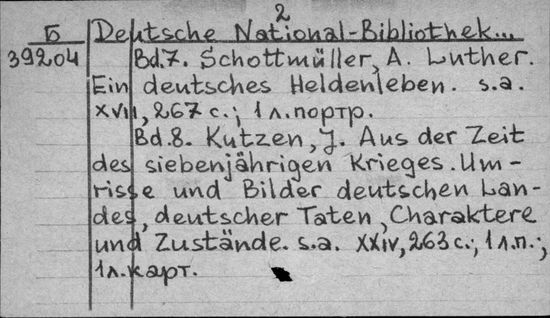 2
Б
39204
Deutsche National-Bibliothek...
Bd.7. Schottmüller, A. Luther.
Ein deutsches Heldenleben. s.a.
XVII, 267 с.; 1 л. портр.
Bd.8. Kutzen, J. Aus der Zeit
des siebenjährigen Krieges. Um-
risse und Bilder deutschen Lan-
des, deutscher Taten, Charaktere
und Zustände. s.a. XXIV, 263 с.; 1 л.п.;
1 л. карт.